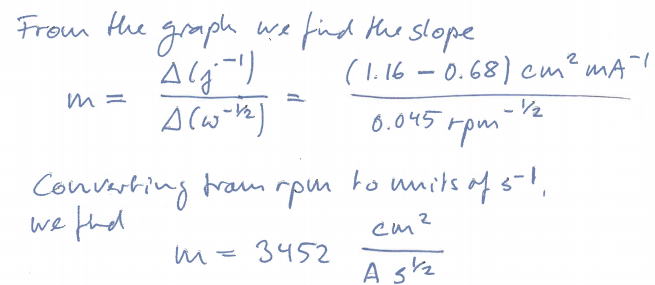 From the graph we find the slope
m = Δ(j⁻¹) / Δ(ω^-1/2) = (1.16 − 0.68) cm² mA⁻¹ / 0.045 rpm^-1/2
Converting from rpm to units of s⁻¹,
we find
m = 3452 cm² / A s^1/2